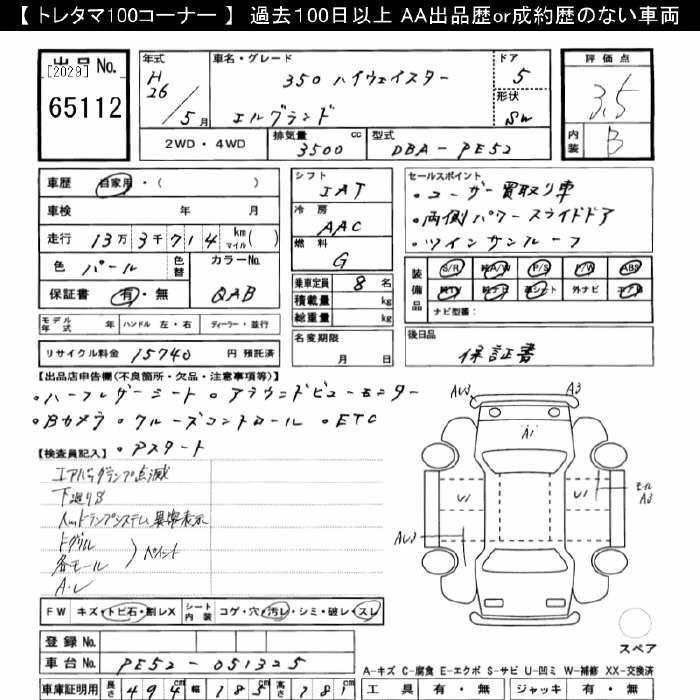 【 トレタマ100コーナー 】 過去100日以上 AA出品歴or成約歴のない車両
出品 No.
[2029]
65112
年式
H26／5月
車名・グレード
350 ハイウェイスター
エルグランド
ドア
5
形状
SW
評価点
3.5
内装
B
2WD・4WD
排気量
3500 cc
型式
DBA-PE52
車歴 自家用・( )
車検 年 月
走行 13万3千714 km マイル( )
色 パール 色替
カラーNo.
QAB
保証書 有・無
シフト
IAT
冷房
AAC
燃料
G
乗車定員 8 名
積載量 kg
総重量 kg
名変期限
月 日
セールスポイント
・ユーザー買取り車
・両側パワースライドドア
・ツインサンルーフ
装備品
S/R 純A/W P/S P/W ABS
純TV 純ナビ 革シート 外ナビ エアB
ナビ型番:
後日品
保証書
モデル年式 年 ハンドル 左・右 ディーラー・並行
リサイクル料金 15740 円 預託済
【出品店申告欄(不良箇所・欠品・注意事項等)】
・ハーフレザーシート ・アラウンドビューモニター
・Bカメラ ・クルーズコントロール ・ETC
・Pスタート
【検査員記入】
エアバッグランプ点滅
下廻りS
トグリル
各モール
ペイント
A・U
FW キズ・トビ石・割レX シート内装 コゲ・穴・汚レ・シミ・破レ・スレ
登録 No.
車台 No. PE52-051325
車庫証明用 長さ 494 cm 幅 185 cm 高さ 181 cm
AU3
A3
A1
U1
U1
モール
A3
AU3
スペア
A-キズ C-腐食 E-エクボ S-サビ U-凹ミ W-補修 XX-交換済
工具 有・無 ジャッキ 有・無